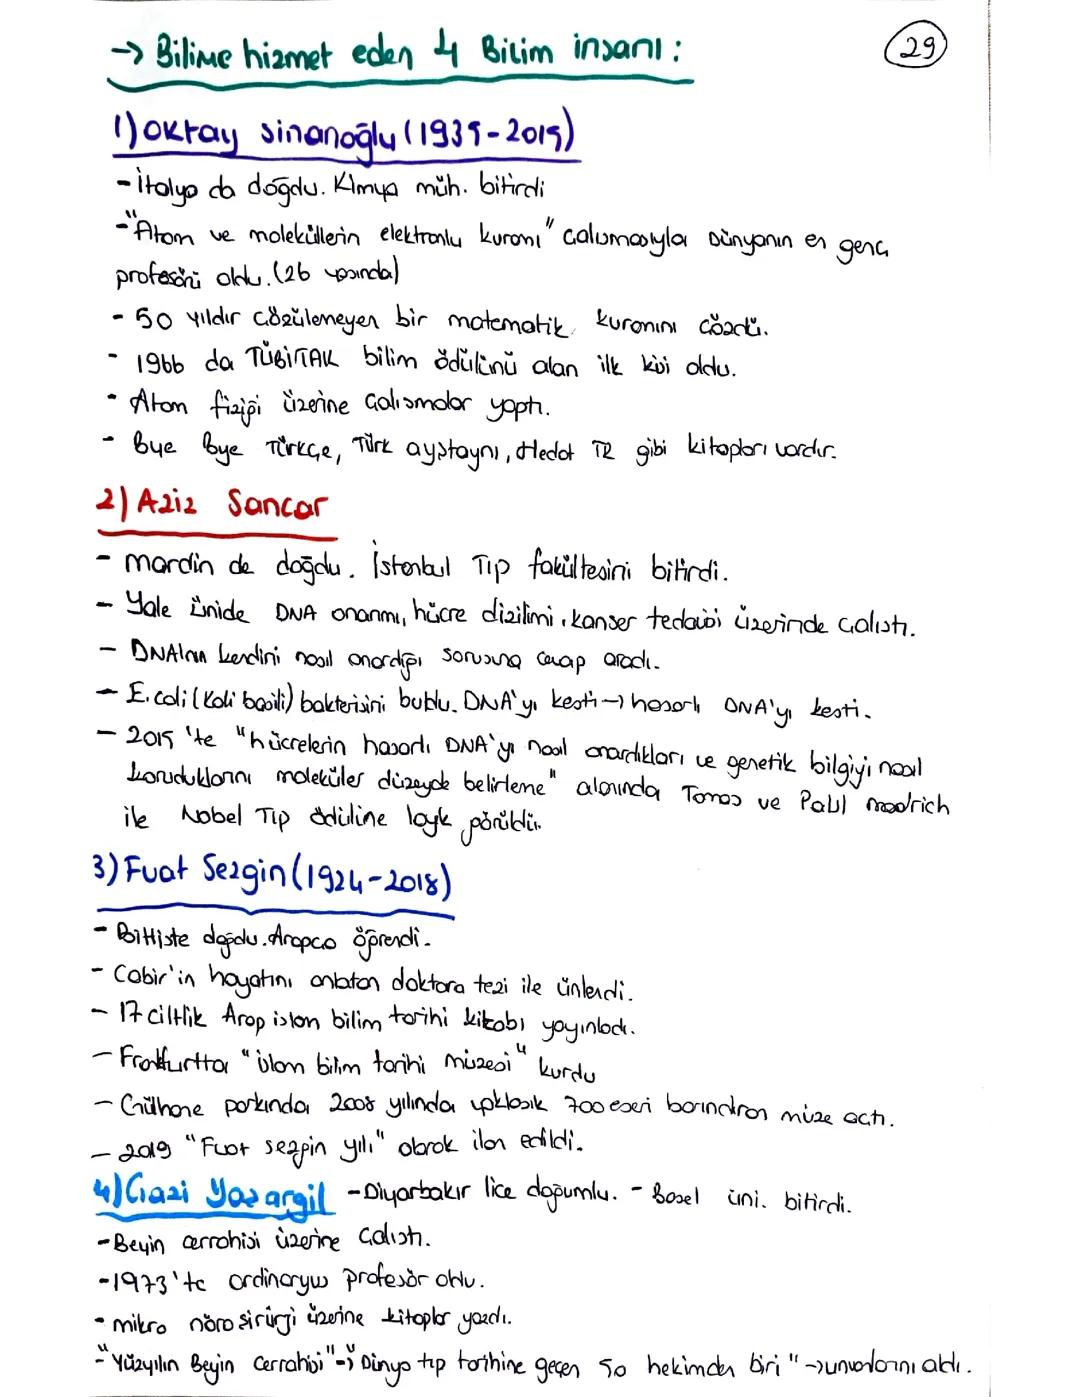 → Bilime hizmet eden 4 Bilim insanı :
29
1) Oktay Sinanoğlu (1935-2015)
- İtalya da doğdu. Kimya müh. bitirdi
- "Atom ve moleküllerin elektronlu kuramı" çalışmasıyla Dünyanın en genç
profesörü oldu. (26 yaşında)
- 50 yıldır çözülemeyen bir matematik kuramını çözdü.
- 1966 da TÜBİTAK bilim ödülünü alan ilk kişi oldu.
- Atom fiziği üzerine çalışmalar yaptı.
- Bye Bye Türkçe, Türk aystaynı, Hedef TR gibi kitapları vardır.
2) Aziz Sancar
- Mardin de doğdu. İstanbul Tıp fakültesini bitirdi.
- Yale ünide DNA onarımı, hücre dizilimi, kanser tedavisi üzerinde çalıştı.
- DNA'nın kendini nasıl onardığı sorusuna cevap aradı.
- E. coli (koli basili) bakterisini buldu. DNA'yı kesti → hasarlı DNA'yı kesti.
- 2015 'te "hücrelerin hasarlı DNA'yı nasıl onardıkları ve genetik bilgiyi nasıl
koruduklarını moleküler düzeyde belirleme" alanında Tomas ve Paul modrich
ile Nobel Tıp ödülüne layık görüldü.
3) Fuat Sezgin (1924-2018)
- Bitliste doğdu. Arapça öğrendi.
- Cabir'in hayatını anlatan doktora tezi ile ünlendi.
- 17 ciltlik Arap islam bilim tarihi kitabı yayınladı.
- Frankfurtta "islam bilim tarihi müzesi" kurdu
- Gülhane parkında 2008 yılında yaklaşık 700 eseri barındıran müze açtı.
- 2019 "Fuat sezgin yılı" olarak ilan edildi.
4) Gazi Yaşargil - Diyarbakır lice doğumlu. - Basel üni. bitirdi.
- Beyin cerrahisi üzerine çalıştı.
- 1973'te ordinaryus profesör oldu.
- mikro nöro şirürji üzerine kitaplar yazdı.
- "Yüzyılın Beyin cerrahisi" → "Dünya tıp tarihine geçen 50 hekimden biri" → unvanlarını aldı.